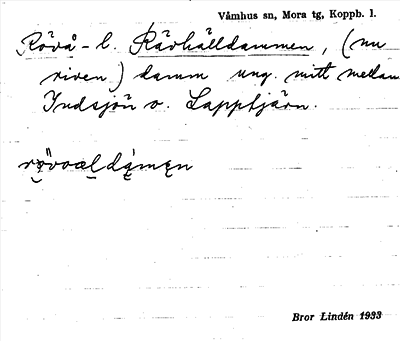 Våmhus sn, Mora tg, Koppb. l.
Rövå- l. Rävhälldammen, (nu
riven) damm ung. mitt mellan
Indsjön o. Lapptjärn.
rövoældamen
Bror Lindén 1933